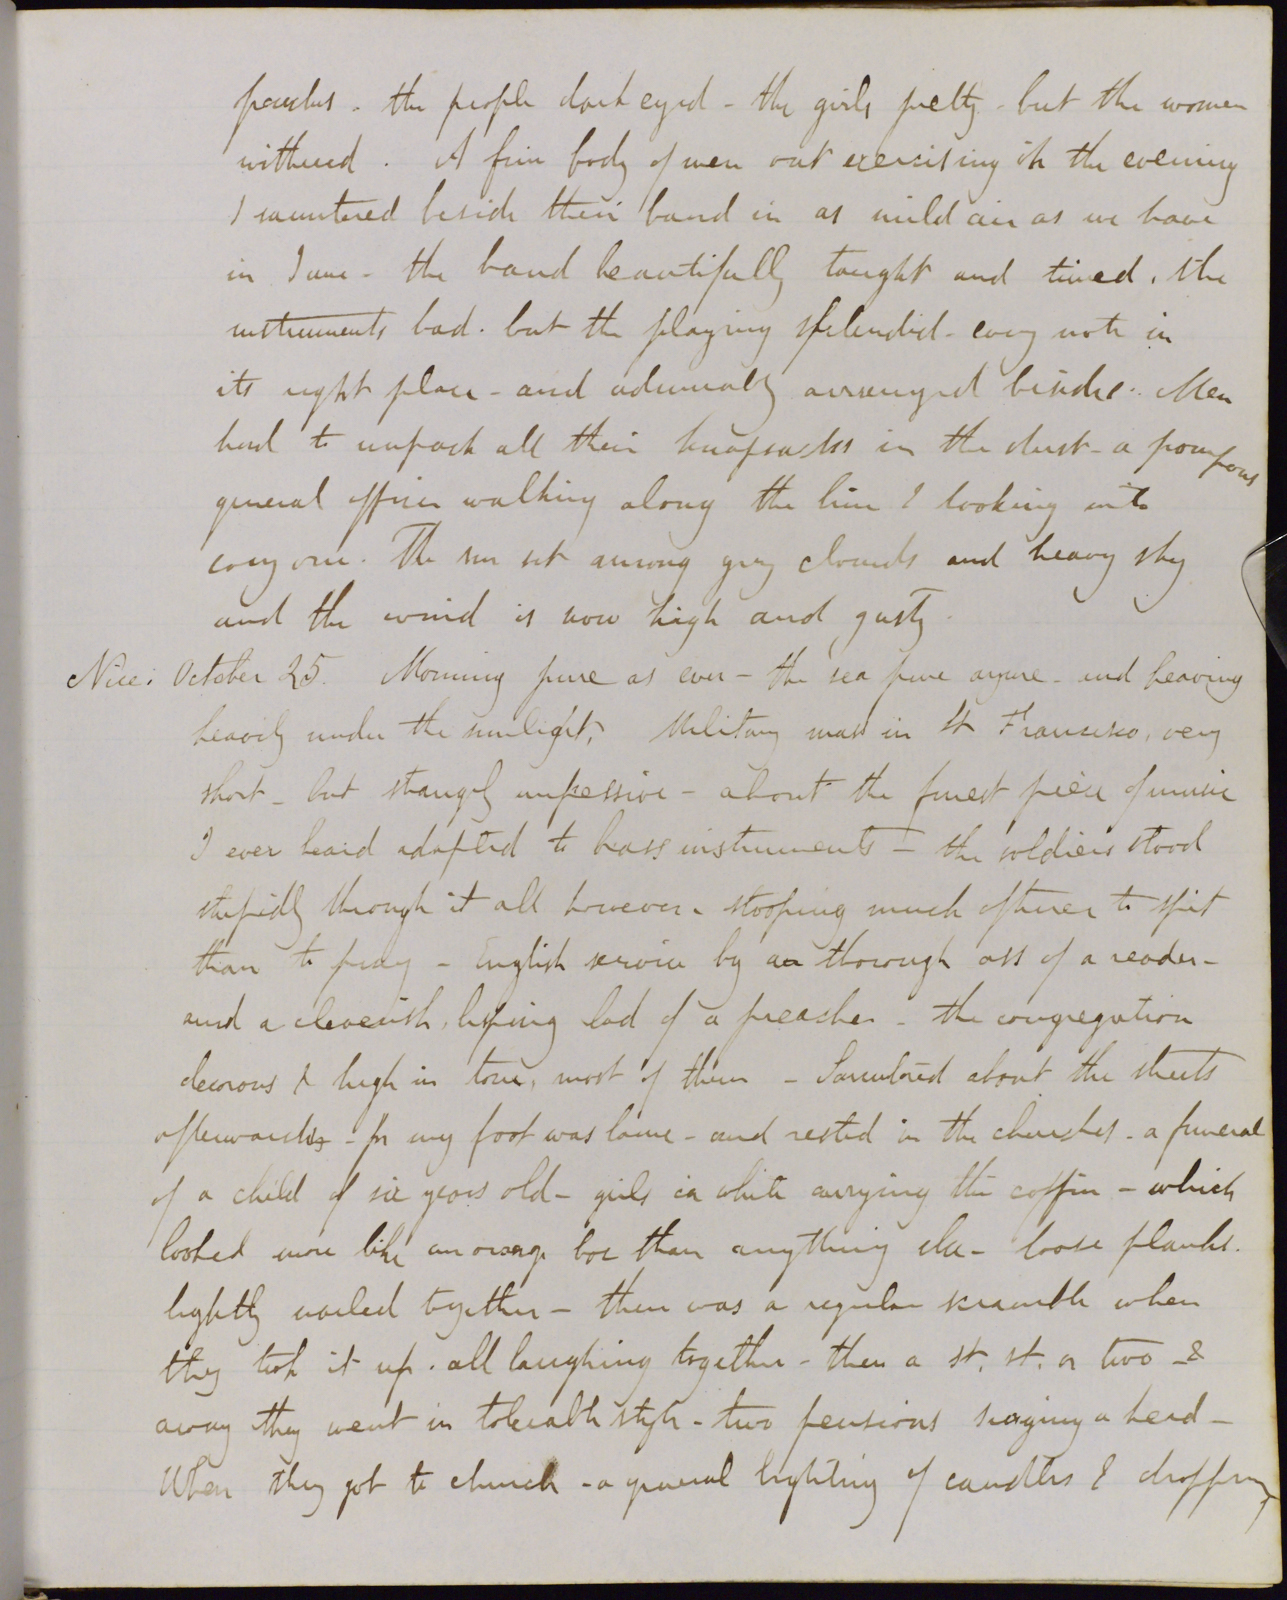 peaches. the people dark eyed - the girls pretty - but the women
withered. A fine body of men out exercising in the evening
I sauntered beside their band in as mild air as we have
in June - the band beautifully taught and timed, the
instruments bad. but the playing splendid - every note in
its right place - and admirably arranged besides. Men
had to unpack all their knapsacks in the dust - a pompous
general officer walking along the line & looking into
every one. The sun set among grey clouds and heavy sky
and the wind is now high and gusty.
Nice: October 25. Morning pure as ever - the sea pure azure - and heaving
heavily under the sunlight, Military mass in St Francisco, very
short - but strangely impressive - about the finest piece of music
I ever heard adapted to brass instruments - the soldiers stood
stupidly through it all however - stooping much oftener to spit
than to pray - English service by a thorough ass of a reader -
and a cleverish, lisping lad of a preacher - the congregation
decorous & high in tone, most of them - Sauntered about the streets
afterwards - for my foot was lame - and rested in the churches - a funeral
of a child of six years old - girls in white carrying the coffin - which
looked more like an orange box than anything else - loose planks.
lightly nailed together - there was a regular scramble when
they took it up. all laughing together - then a st. st. or two - &
away they went in tolerable style - two pensions singing ahead -
When they got to church - a general lighting of candles & dropping